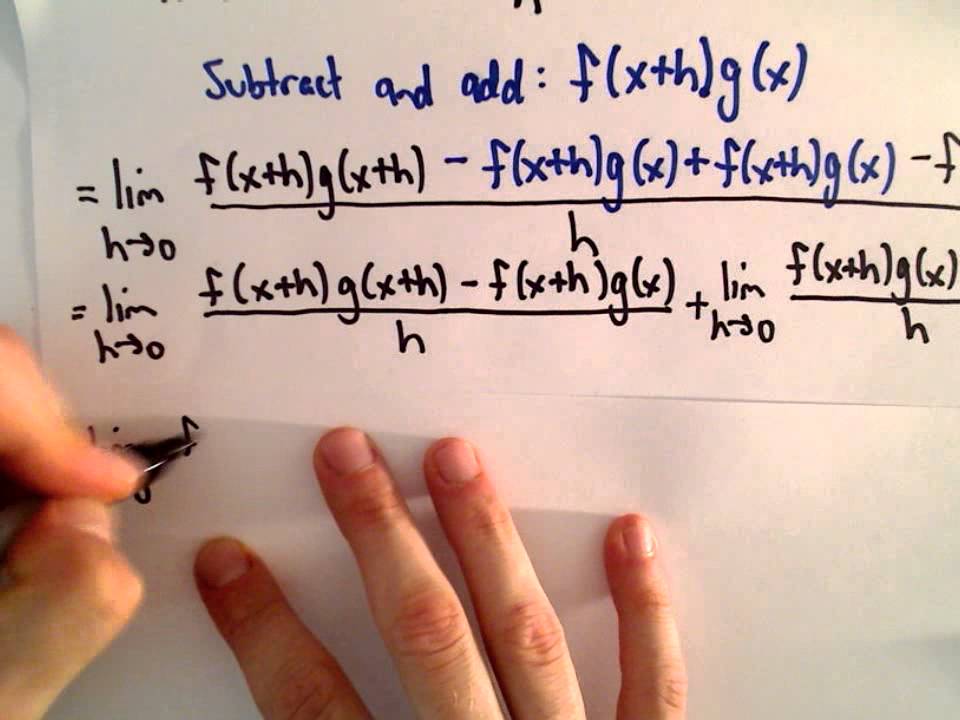 Subtract and add: f(x+h)g(x)
= lim h→0 f(x+h)g(x+h) - f(x+h)g(x) + f(x+h)g(x) - f
h
= lim h→0 f(x+h)g(x+h) - f(x+h)g(x) / h + lim h→0 f(x+h)g(x) / h
f